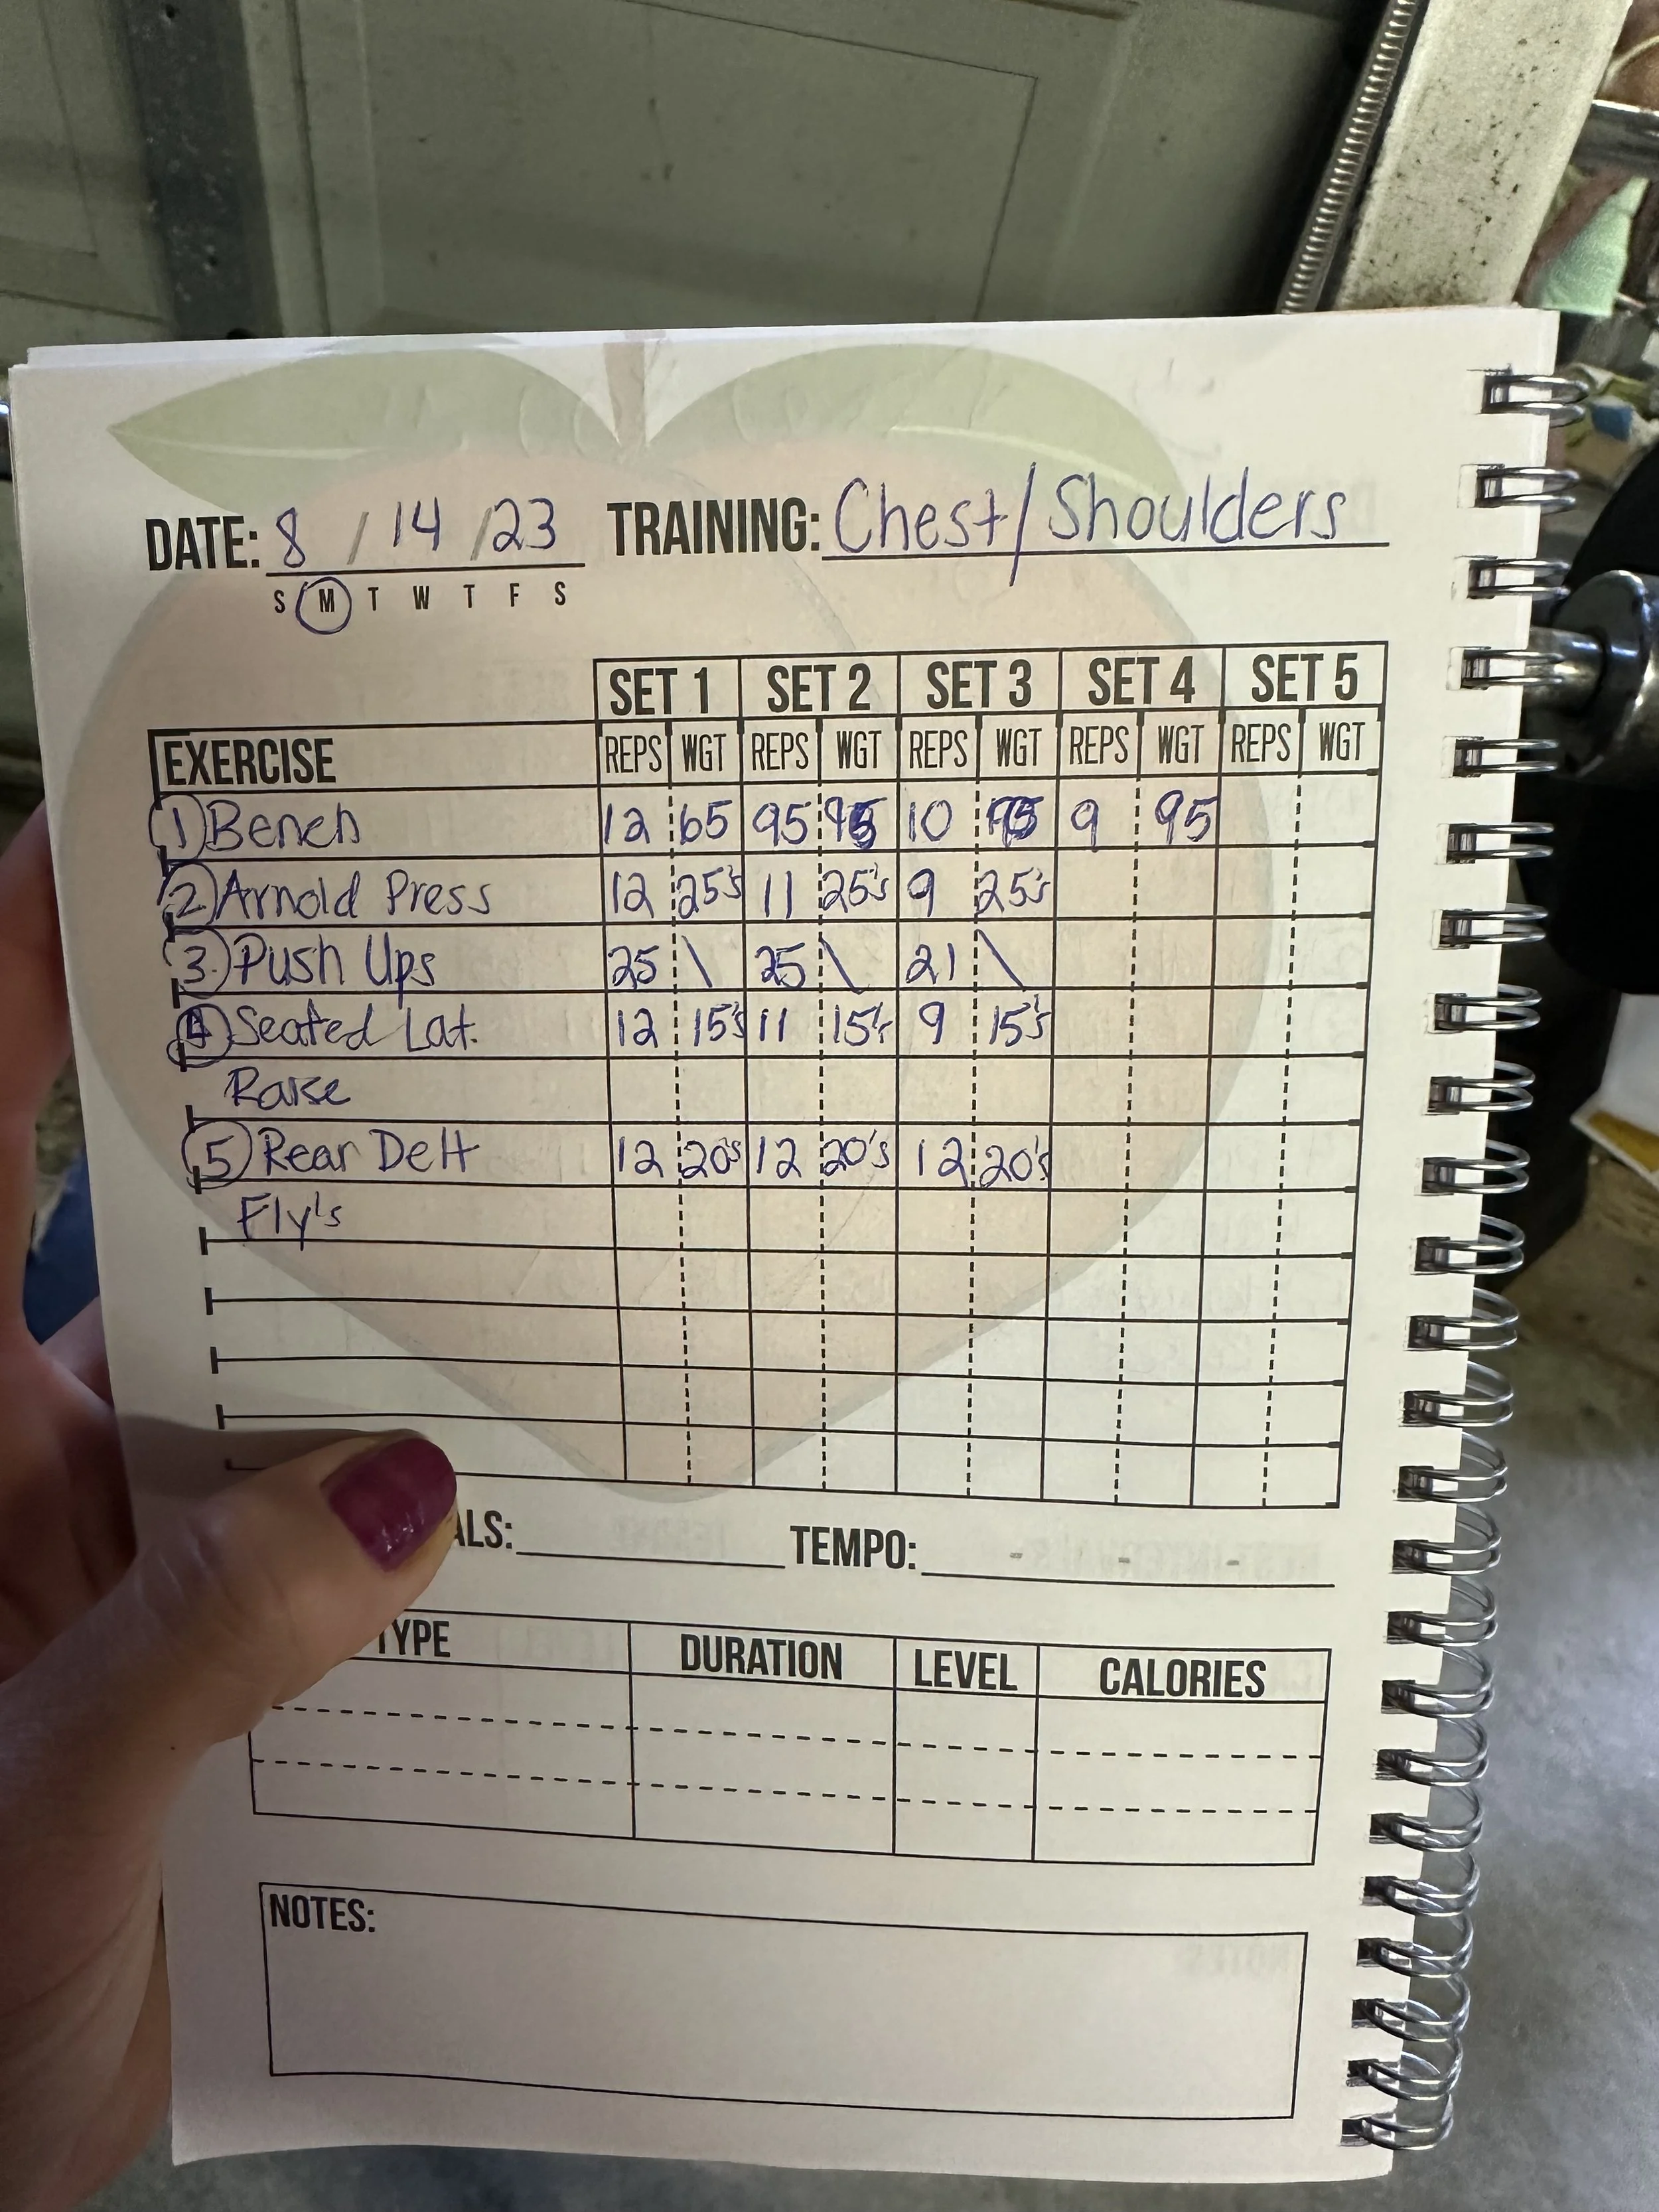 DATE: 8 / 14 / 23 TRAINING: Chest/Shoulders
S M T W T F S
SET 1 SET 2 SET 3 SET 4 SET 5
EXERCISE REPS WGT REPS WGT REPS WGT REPS WGT REPS WGT
1 Bench 12 65 95 95 10 95 9 95
2 Arnold Press 12 25's 11 25's 9 25's
3. Push Ups 25 \ 25 \ 21 \
4 Seated Lat. 12 15's 11 15's 9 15's
Raise
5 Rear Delt 12 20's 12 20's 12 20's
Fly's
ALS: TEMPO: - - -
TYPE DURATION LEVEL CALORIES
NOTES: